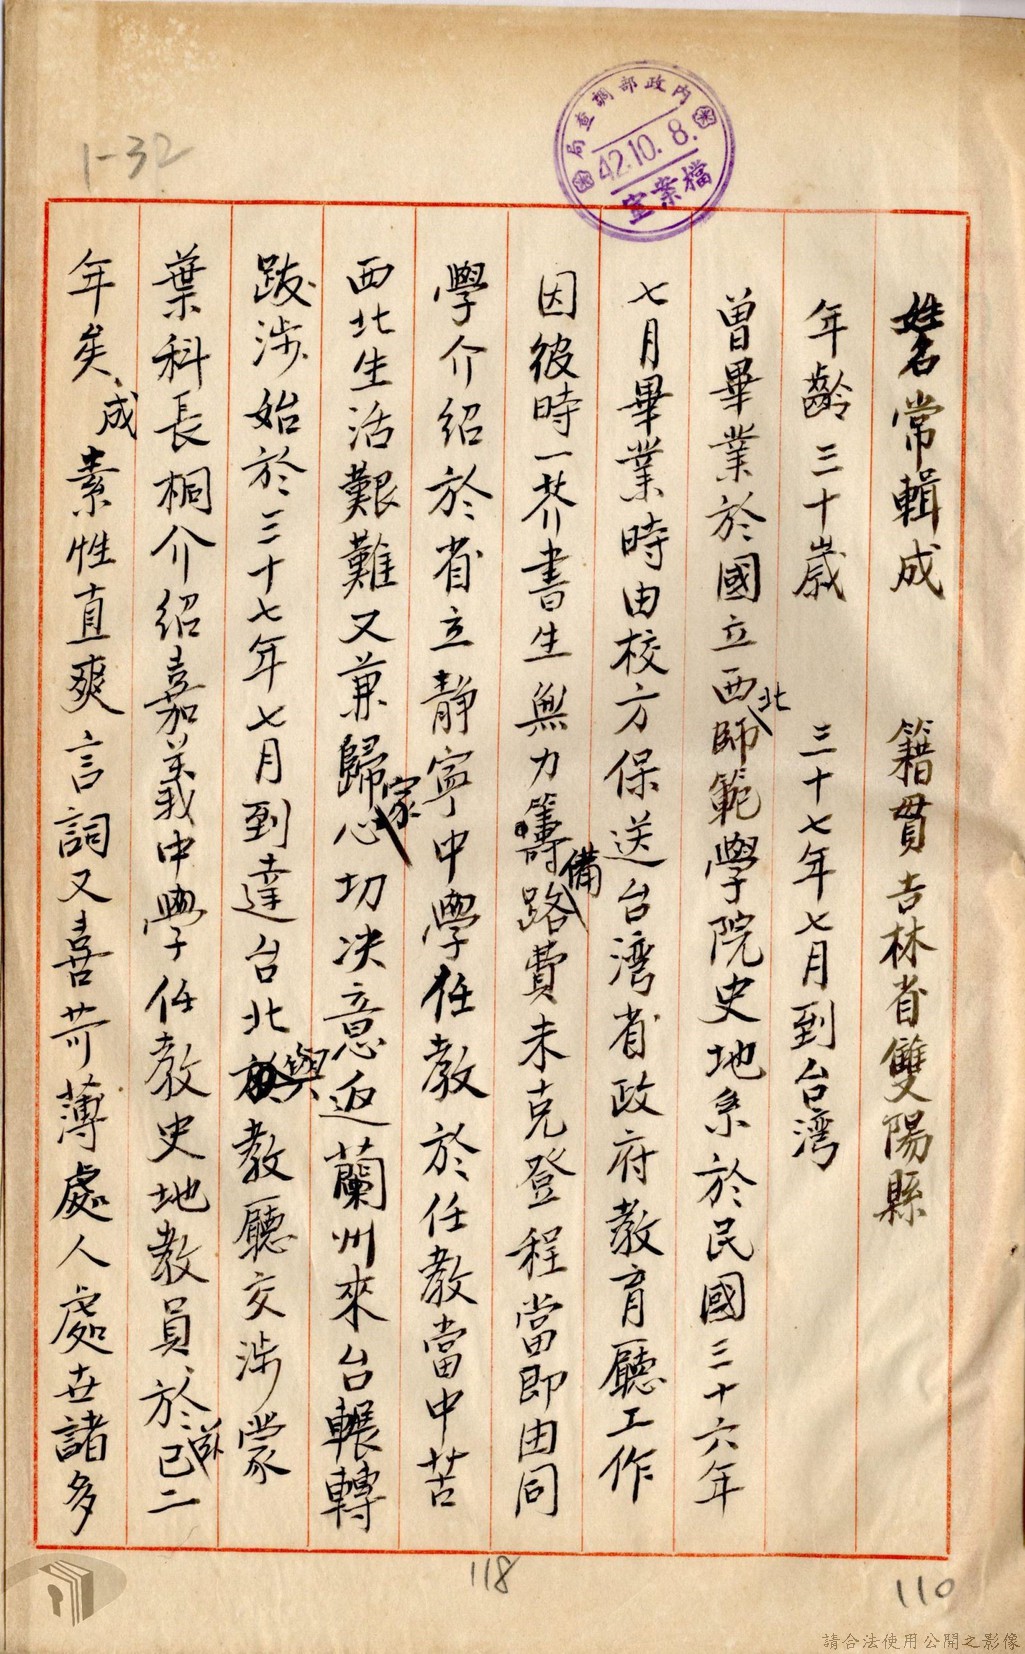 1-32
內政部調查局
42.10.8.
檔案室
姓名常輯成 籍貫吉林省雙陽縣
年齡三十歲 三十七年七月到台灣
曾畢業於國立西北師範學院史地系於民國三十六年
七月畢業時由校方保送台灣省政府教育廳工作
因彼時一芥書生無力籌備路費未克登程當即由同
學介紹於省立靜寧中學任教於任教當中苦
西北生活艱難又兼歸家心切決意返蘭州來台輾轉
跋涉始於三十七年七月到達台北與教廳交涉蒙
葉科長桐介紹嘉義中學任教史地教員、於茲已二
年矣、成素性直爽言詞又喜苛薄處人處世諸多
118
110
請合法使用公開之影像